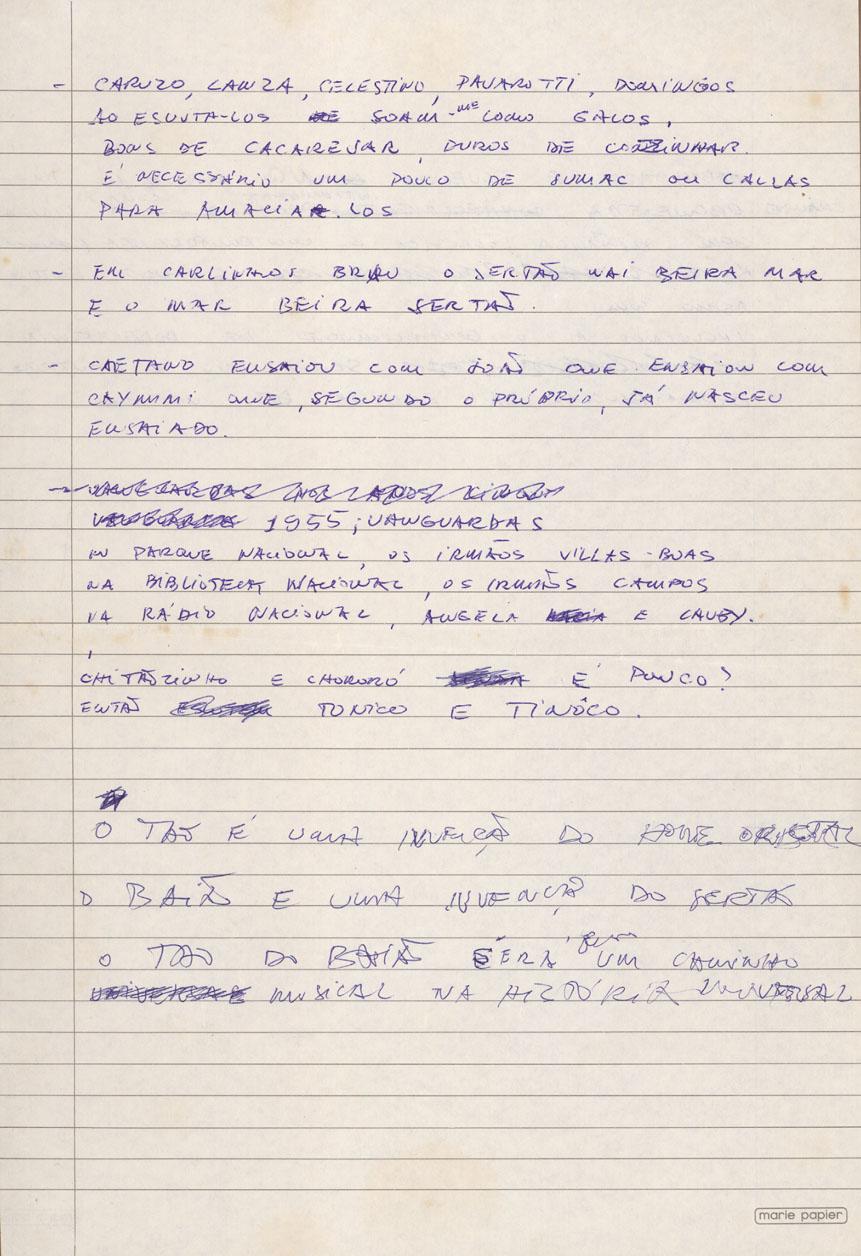 - CARUZO, LANZA, CELESTINO, PAVAROTTI, DOMINGOS
AO ESCUTA-LOS SOAM-ME COMO GALOS,
BONS DE CACAREJAR, DUROS DE COZINHAR.
É NECESSÁRIO UM POUCO DE SUMAC OU CALLAS
PARA AMACIAR-LOS
- EM CARLINHOS BROWN O SERTÃO VAI BEIRA MAR
E O MAR BEIRA SERTÃO.
- CAETANO ENSAIOU COM JOÃO QUE ENSAIOU COM
CAYMMI QUE, SEGUNDO O PRÓPRIO, JÁ NASCEU
ENSAIADO.
1955; VANGUARDAS
NO PARQUE NACIONAL, OS IRMÃOS VILLAS-BOAS
NA BIBLIOTECA NACIONAL, OS IRMÃOS CAMPOS
NA RÁDIO NACIONAL, ANGELA E CAUBY.
CHITÃOZINHO E CHORORÓ É POUCO?
ENTÃO TONICO E TINÔCO.
O TAO É UMA INVENÇÃO DO ORIENTAL
O BAIÃO E UMA INVENÇÃO DO SERTÃO
O TAO DO BAIÃO SERÁ UM CAMINHO
MUSICAL NA HISTÓRIA UNIVERSAL
marie papier